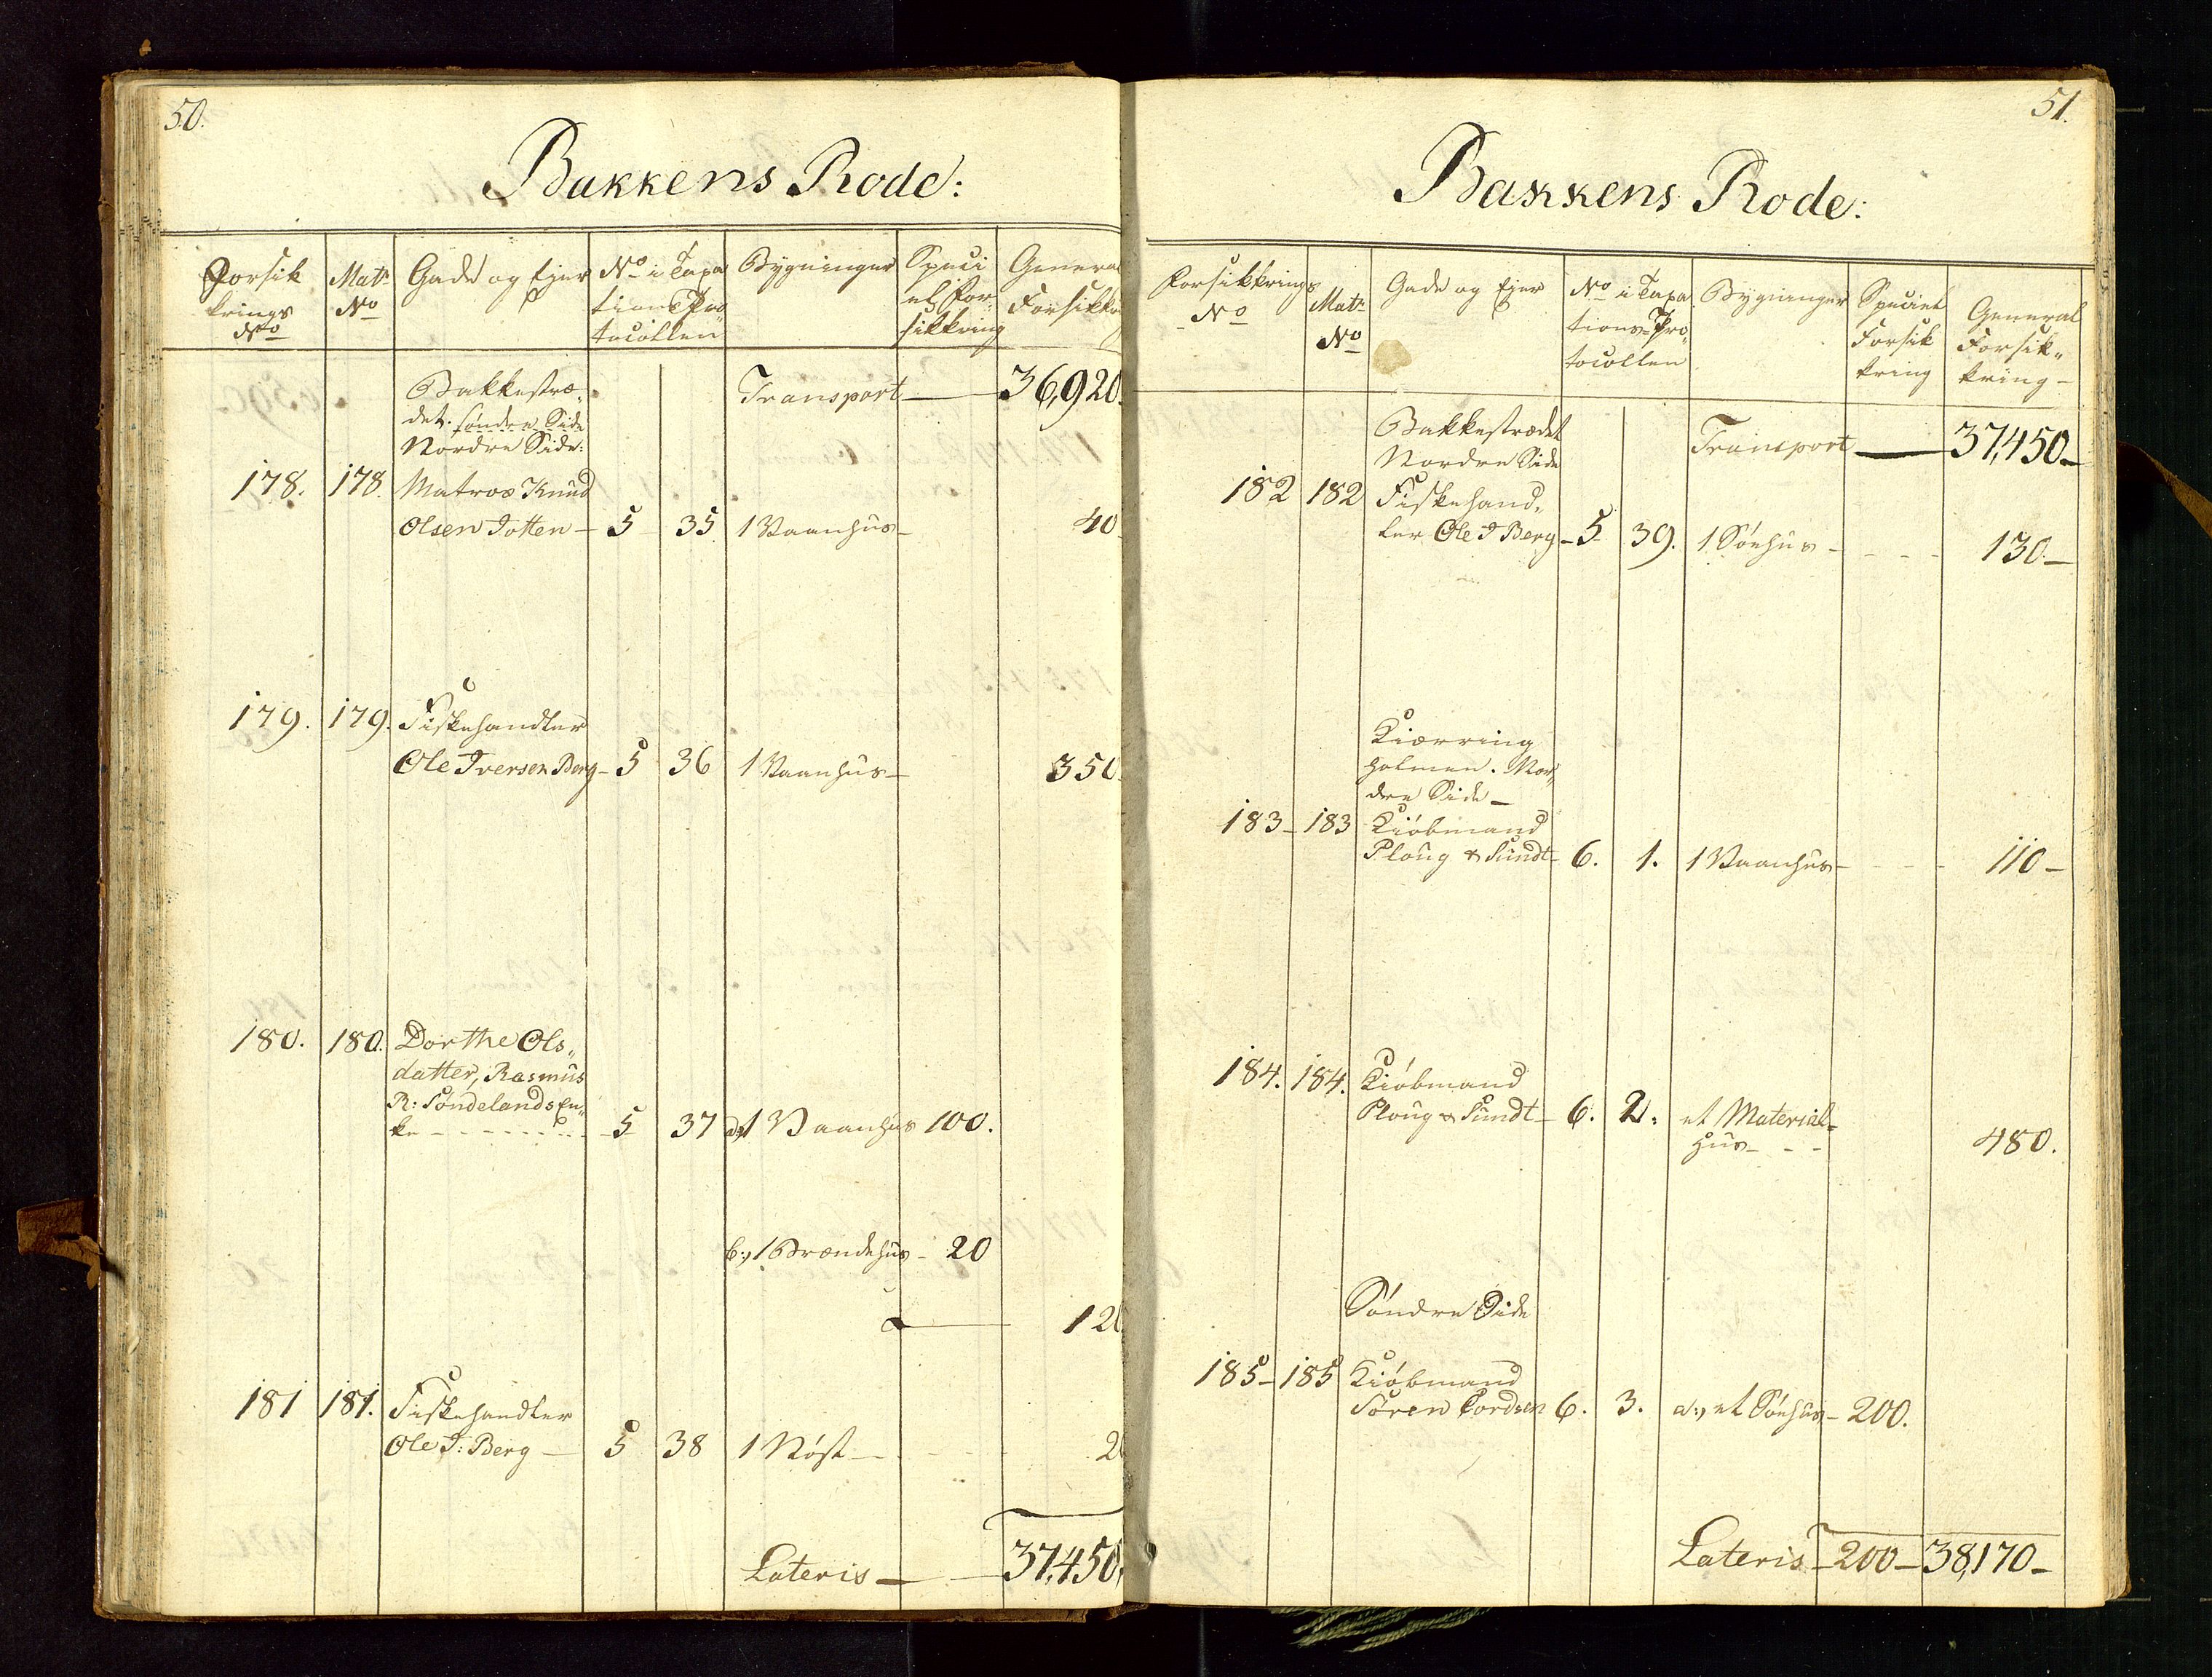 50.
Bakkens Rode:
Forsik
krings
No
Matr
No
Gade og Ejer
No i Taxa
tions Pro
tocollen
Bygninger
Speci
el For
sikkring
General
Forsikkr
Bakkestræ„
det. søndre Side
Nordre Side:
Transport — 36,920.
178. 178. Matros Knud
Olsen Totten — 5 35 1 Vaanhus — 40
179. 179. Fiskehandler
Ole Iversen Berg — 5 36 1 Vaanhus — 350.
180. 180. Dorthe Ols„
datter, Rasmus
R: Søndelands En„
ke — 5 37 a, 1 Vaanhus 100.
b:, 1 Brændehus — 20
120
181 181. Fiskehandler
Ole I: Berg — 5 38 1 Nøst — 20
Lateris — 37,450,
51.
Bakkens Rode:
Forsikkrings
No
Matr
No
Gade og Ejer
No i Taxa
tions Pro„
tocollen
Bygninger
Speciel
Forsik
kring
General
Forsik„
kring —
Bakkestrædet
Nordre Side
Transport — 37,450 —
182 182 Fiskehand„
ler Ole I Berg — 5 39. 1 Søehus — 130 —
Kiærring
holmen. Nor„
dre Side —
183 — 183 Kiøbmand
Ploug & Sundt — 6. 1. 1 Vaanhus — 110 —
184. 184. Kiøbmand
Ploug & Sundt — 6. 2. et Material„
hus — 480.
Søndre Side
185 — 185 Kiøbmand
Søren Tordsen 6. 3. a:, et Søehus — 200.
Lateris — 200 — 38,170 —